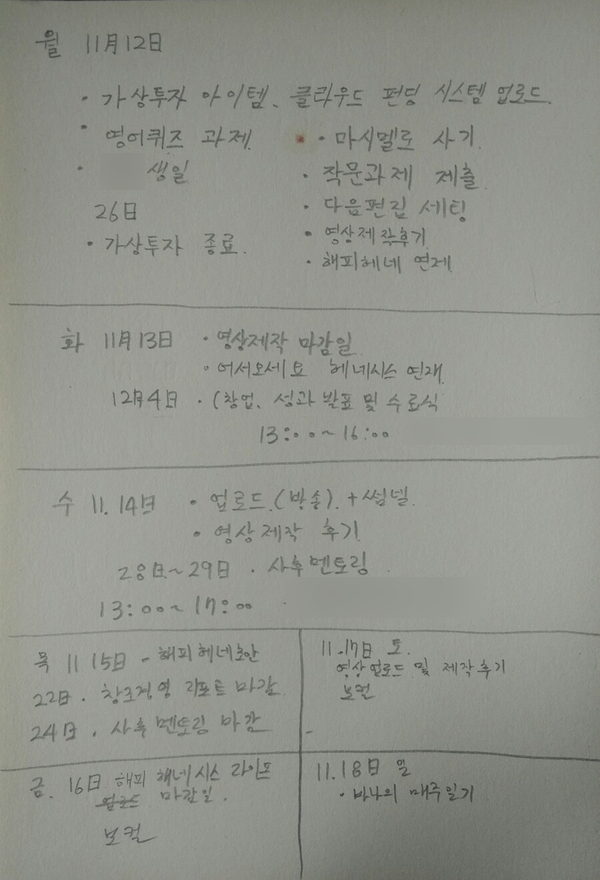 월 11月12日
· 가상투자 아이템、클라우드 펀딩 시스템 업로드.
· 영어퀴즈 과제.
· 생일
26日
· 가상투자 종료.
· 마시멜로 사기.
· 작문과제 제출.
· 다음편집 세팅
· 영상제작후기
· 해피헤네 연재
화 11月13日 · 영상제작 마감일.
· 어서오세요 헤네시스 연재
12月4日 · (창업、성과 발표 및 수료식
13:00~16:00
수 11.14日 · 업로드.(방송).+썸넬.
· 영상제작 후기.
28日~29日 · 사후멘토링
13:00~17:00
목 11 15日 - 해피헤네초안
22日 · 창조경영 리포트 마감
24日 · 사후멘토링 마감
금. 16日 해피 헤네시스 라이프
업로드 마감일.
보컬
11.17日 토.
영상업로드 및 제작후기
보컬
11.18日 일
· 매주일기